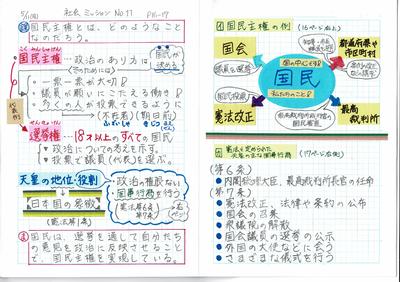 5/11(月) 社会 ミッション No.11 P16~17
国民主権とは、どのようなこと
なのだろう。
国民が決める
国民主権…政治のあり方は
そのためには
・一票が大切!
・議員が願いにこたえる働き!
・多くの人が投票できるように
(不在者)(期日前)
選挙権…18才以上のすべての国民
政治についての考えを示す。
投票で議員(代表)を選ぶ。
天皇の地位・役割
日本国の象徴
(憲法第1条)
・政治の権限ない
・国事行為を行う
(憲法第6条
第7条)
国民は、選挙を通して自分たち
の意見を政治に反映させること
で、国民主権を実現している。
国民主権の例 (16ページ右上)
国会
議員を選挙
都道府県や
市区町村
国の中心が!
国民
私たちのこと!
国民投票
憲法改正
最高裁判所裁判官の
国民審査
最高
裁判所
憲法で定められた
天皇の主な国事行為 (17ページ右側)
(第6条)
・内閣総理大臣、最高裁判所長官の任命
(第7条)
・憲法改正、法律や条約の公布
・国会の召集
・衆議院の解散
・国会議員の選挙の公示
・外国の大使などに会う
・さまざまな儀式を行う